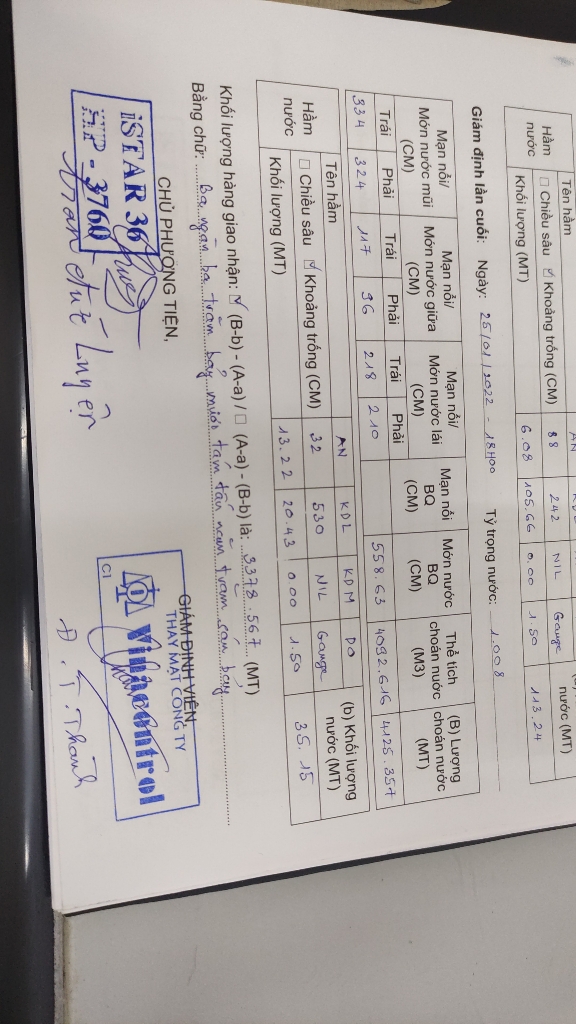 Tên hầm AN
Hầm nước ☐ Chiều sâu ☑ Khoảng trống (CM) 88 242 NIL Gauge nước (MT)
Khối lượng (MT) 6.08 105.66 0.00 1.50 113.24
Giám định lần cuối: Ngày: 25/01/2022 - 18H00 Tỷ trọng nước: 1.008
Mạn nổi/ Món nước mũi (CM) Mạn nổi/ Món nước giữa (CM) Mạn nổi/ Món nước lái (CM) Mạn nổi BQ (CM) Món nước BQ (CM) Thể tích choán nước (M3) (B) Lượng choán nước (MT)
Trái Phải Trái Phải Trái Phải
334 324 117 96 218 210 558.63 4092.616 4125.357
Tên hầm AN KDL KDM DO (b) Khối lượng nước (MT)
Hầm nước ☐ Chiều sâu ☑ Khoảng trống (CM) 32 530 NIL Gauge
Khối lượng (MT) 13.22 20.43 0.00 1.50 35.15
Khối lượng hàng giao nhận: ☑ (B-b) - (A-a) / ☐ (A-a) - (B-b) là: 3378.567 (MT)
Bằng chữ: Ba ngàn ba trăm bảy mươi tám tấn năm trăm sáu bảy
CHỦ PHƯƠNG TIỆN,
GIÁM ĐỊNH VIÊN
THAY MẶT CÔNG TY
iSTAR 36
HP - 3760
Vinacontrol
C1
Trần Đức Luyện
Đ. T. Thành